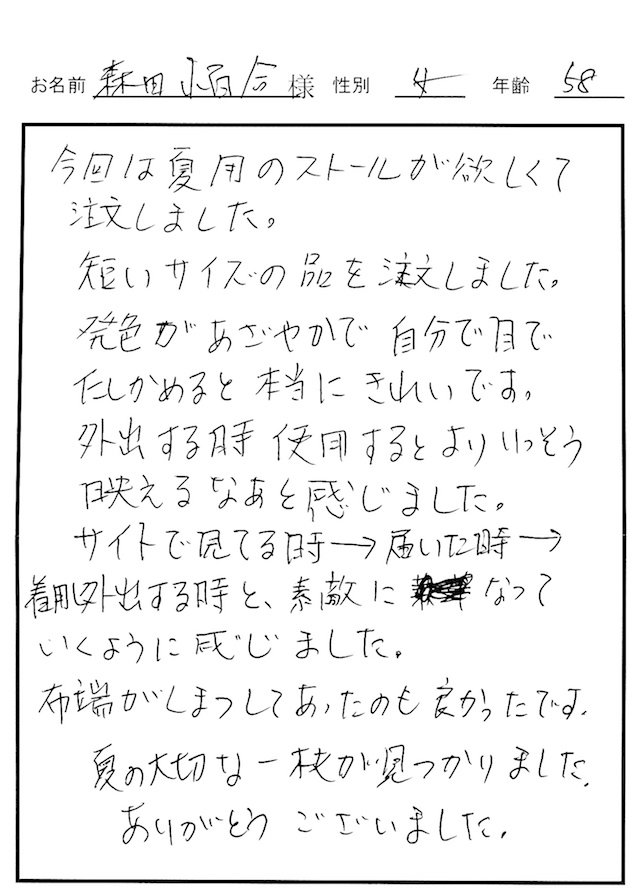 お名前 森田 小百合 様 性別 女 年齢 58
今回は夏用のストールが欲しくて
注文しました。
短いサイズの品を注文しました。
発色があざやかで 自分で目で
たしかめると 本当に きれいです。
外出する時 使用するとよりいっそう
映えるなあと感じました。
サイトで見てる時→届いた時→
着用し外出する時と、素敵に なって
いくように感じました。
布端がしまつしてあったのも良かったです.
夏の大切な一枚が見つかりました.
ありがとう ございました.